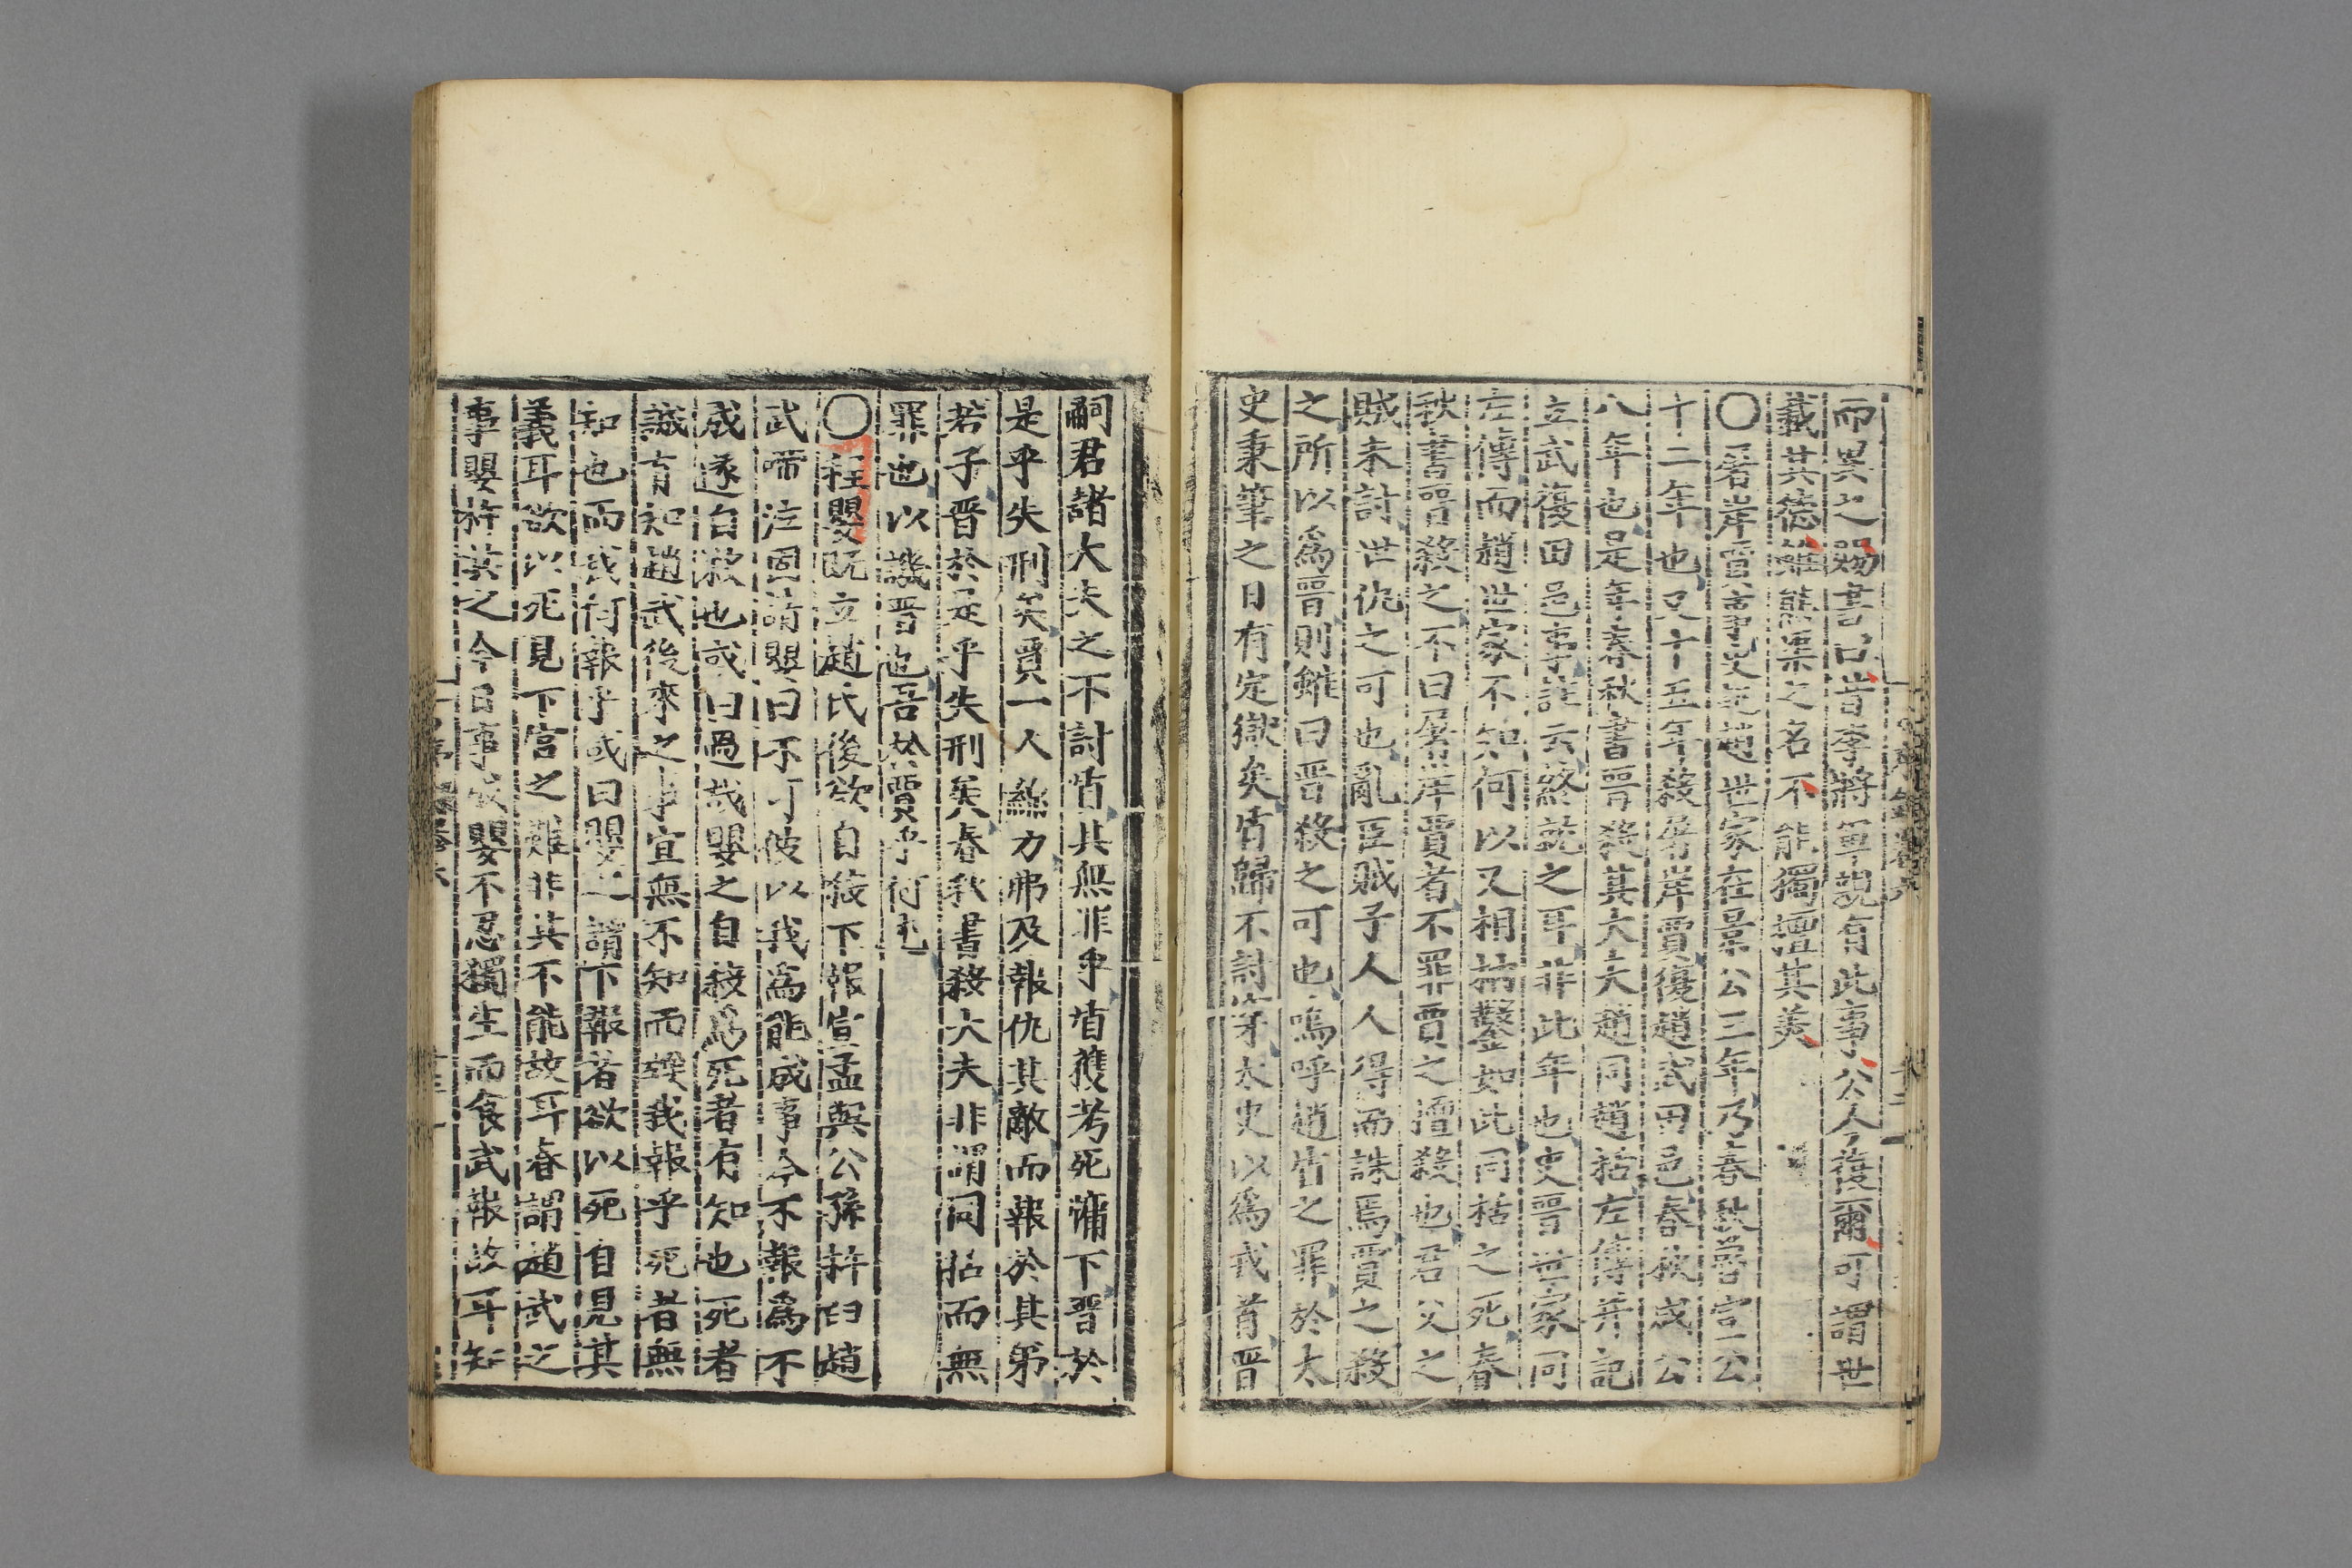 而異之賜書曰昔李將軍説有此事公人復爾可謂世
載其德雖熊渠之名不能獨擅其美
〇屠岸賈事史記趙世家在景公三年乃春秋魯宣公
十二年也又十五年殺屠岸賈復趙武田邑春秋成公
八年也是年春秋書晋殺其大夫趙同趙括左傳并記
立武復田邑事註云終説之耳非此年也史晋世家同
左傳而趙世家不知何以又相枘鑿如此同括之死春
秋書晋殺之不曰屠岸賈者不罪賈之擅殺也君父之
賊未討世仇之可也亂臣賊子人人得而誅焉賈之殺
之所以爲晋則雖曰晋殺之可也嗚呼趙盾之罪於太
史秉筆之日有定獄矣盾歸不討穿太史以爲戎首晋
嗣君諸大夫之不討盾其無非乎盾獲考死牖下晋於
是乎失刑矣賈一人煞力弗及報仇其敵而報於其弟
若子晋於是乎失刑矣春秋書殺大夫非謂同括而無
罪也以譏晋也吾於賈乎何尤
〇程嬰既立趙氏後欲自殺下報宣孟與公孫杵臼趙
武啼泣固請嬰曰不可彼以我爲能成事今不報爲不
成遂自殺也或曰過哉嬰之自殺爲死者有知也死者
誠有知趙武後來之事宜無不知而竢我報乎死者無
知也而我何報乎或曰嬰之謂下報者欲以死自見其
義耳欲以死見下宮之難非其不能故耳春謂趙武之
事嬰杵共之今日事成嬰不忍獨生而食武報故耳知